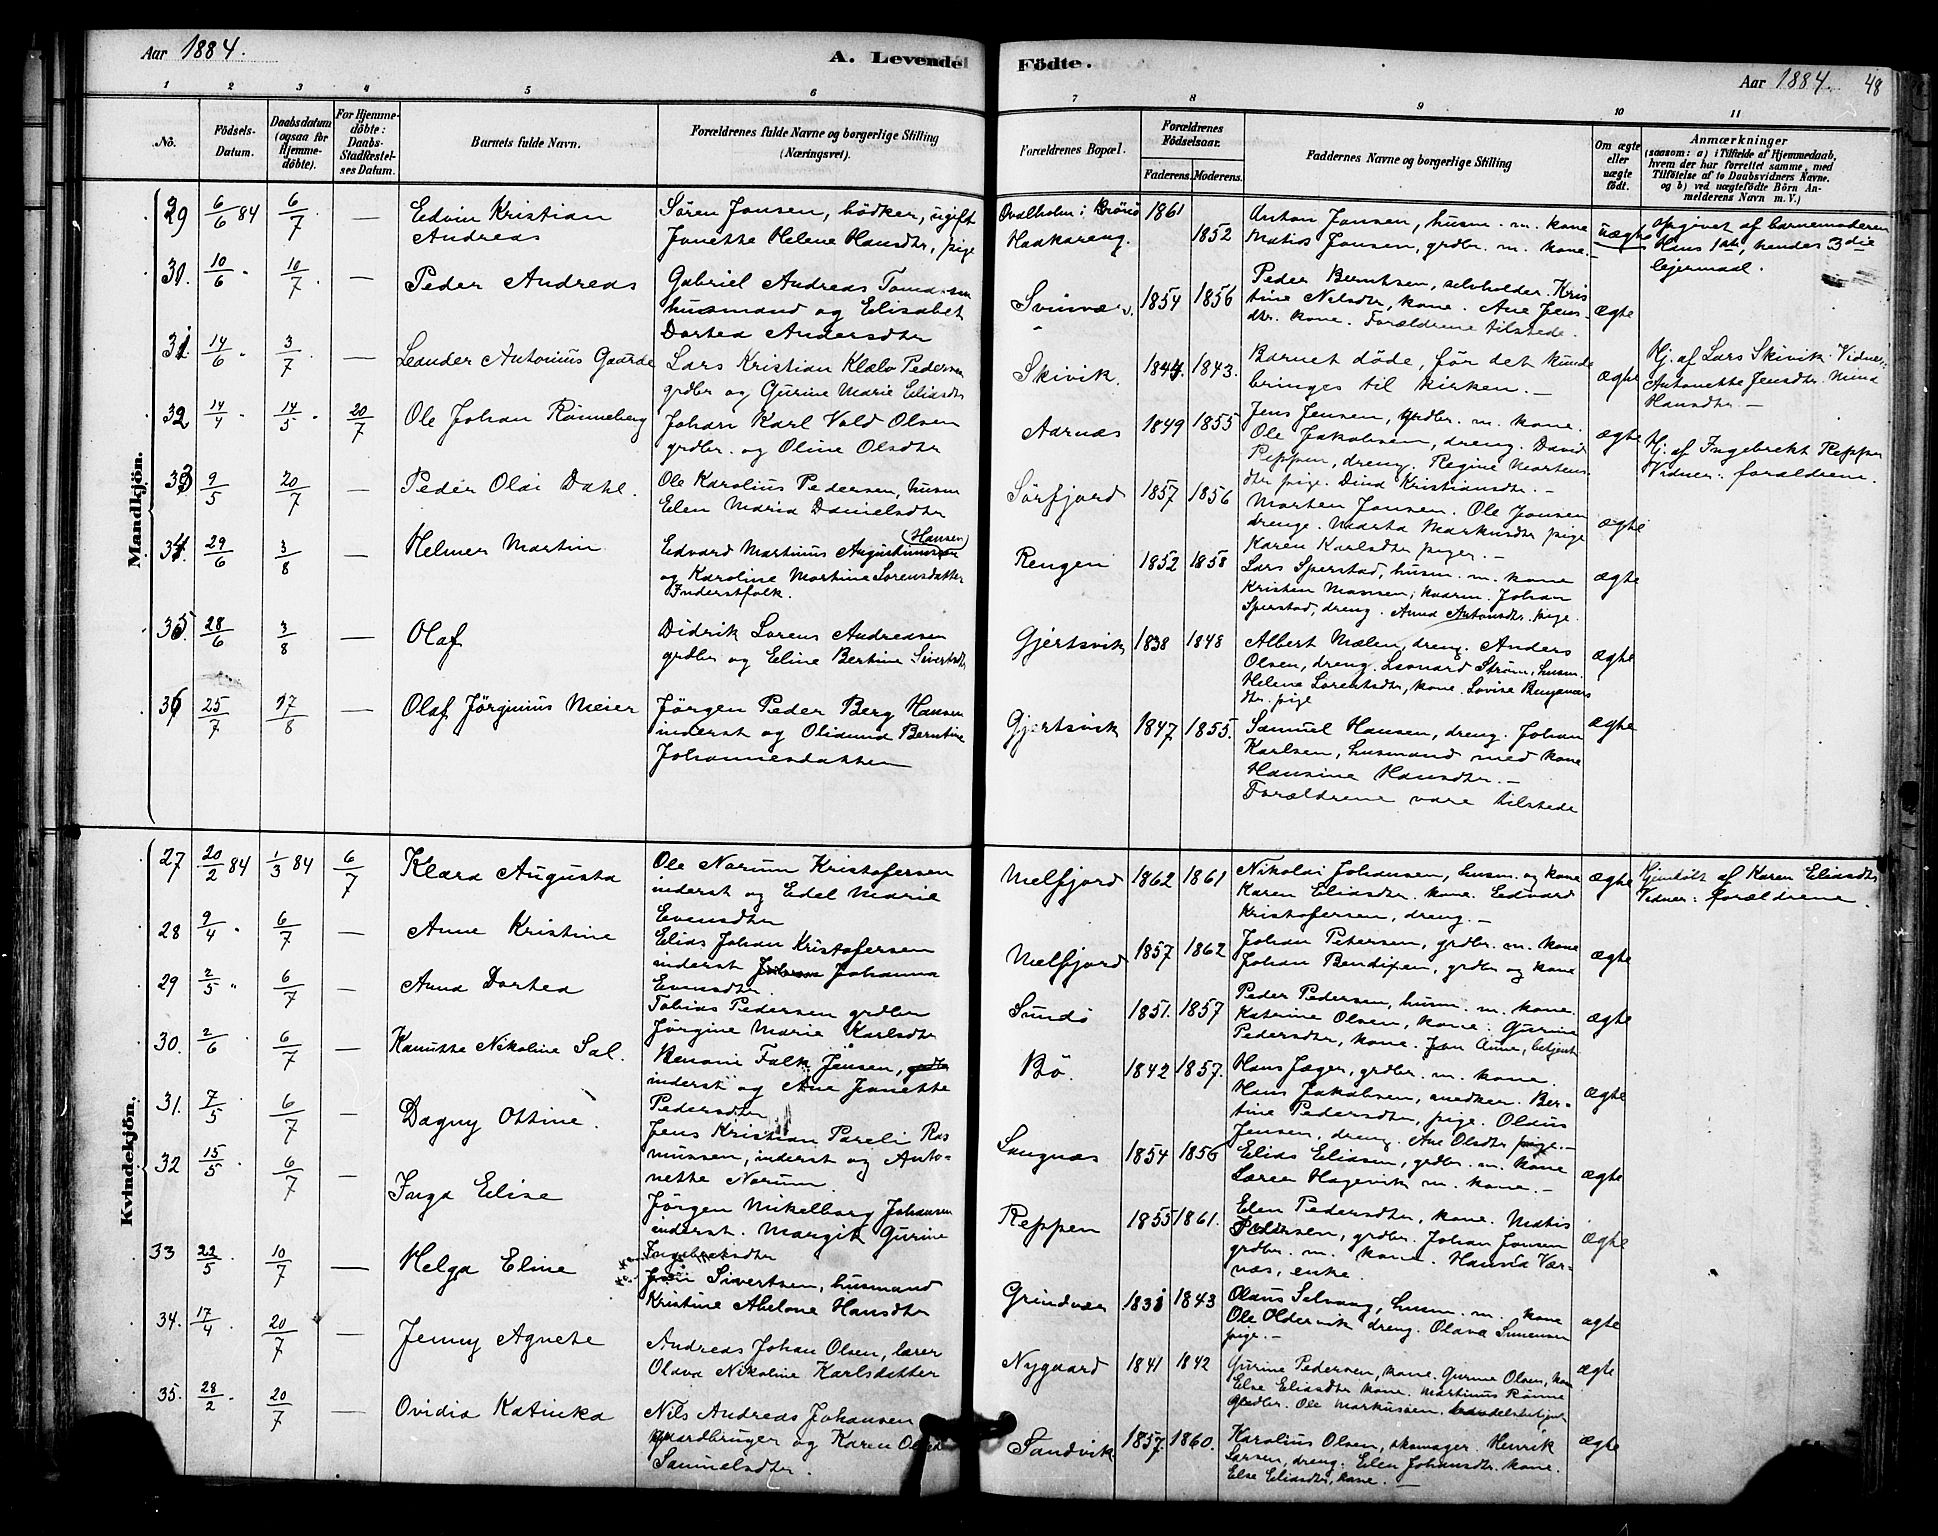 Aar 1884.
A. Levende Födte.
Aar 1884. 48
1 2 3 4 5 6 7 8 9 10 11
No.
Födsels-
Datum.
Daabsdatum
(ogsaa for
Hjemme-
döbte).
For Hjemme-
döbte:
Daabs-
Stadfæstel-
ses Datum.
Barnets fulde Navn.
Forældrenes fulde Navne og borgerlige Stilling
(Næringsvei).
Forældrenes Bopæl.
Forældrenes
Födselsaar.
Faderens. Moderens.
Faddernes Navne og borgerlige Stilling
Om ægte
eller
uægte
födt.
Anmærkninger
(saasom: a) i Tilfælde af Hjemmedaab,
hvem der har forrettet samme, med
Tilföielse af to Daabsvidners Navne.
og b) ved uægtefödte Börn An-
melderens Navn m. V.)
Mandkjön.
29 6/6 84 6/7 — Edvin Kristian
Andreas
Sören Jonsen, bödker, ugift
Janette Helene Hansdtr, pige
Ovalholm i Brönö 1861
Haakareng. 1852
Anton Jonsen, husm. m. kone
Matias Jonsen, grdbr. m. kone.
uægte
Opgivet af barnemoderen
Hans 1ste, hendes 3die
leiermaal.
30. 10/6 10/7 — Peder Andreas
Gabriel Andreas
husmand og Elisabet
Dortea Andersdtr
1854 1856
Peder Berntsen, selvholder. Kris
tine Nilsdtr, kone. Ane Jens-
dtr. kone. Forældrene tilstede.
ægte
31. 14/6 3/7 — Leander Antonius Gaarde
Lars Kristian Klæbo Pedersen
grdbr og Gurine Marie Eliasdtr
Skivik. 1844. 1843.
Barnet döde, för det kunde
bringes til kirken. —
ægte
Hj. af Lars Skivik. Vidner:
Antonette Jensdtr. Mina
Hansdtr. —
32 14/4 14/5 20/7 Ole Johan Rönneberg
Johan Karl Vold Olsen
grdbr. og Oline Olsdtr
Aarnæs 1849 1855
Jens Jensen, grdbr. m. kone.
Ole Jakobsen, dreng. David
Reppen, dreng. Regine Martens
dtr pige. Dina Kristiansdtr. —
ægte
Hj. af Ingebrekt Reppen
Vidner: forældrene.
33 9/5 20/7 — Peder Olai Dahl.
Ole Karolius Pedersen, husm
Elen Maria Danielsdtr
Sörfjord 1857 1856
Morten Jonsen. Ole Jonsen
drenge. Marta Markusdtr pige
Karen Karlsdtr piger. —
ægte
34. 29/6 3/8 — Helmer Martin
Edvard Martinus Augustinussen (Hansen)
og Karoline Martine Sörensdatter
Inderstfolk.
Rengen 1852 1858
Lars Sperstad, husm. m. kone
Kristen Monsen, Johan
Sperstad, dreng. Anna Antonsdtr. pige.
ægte
35. 28/6 3/8 — Olaf
Didrik Lorens Andreasen
grdbr og Eline Bertine Sivertsdtr
Gjertsvik 1838 1848
Albert Mælen, dreng. Anders
Olsen, dreng. Leonard Ström, husm.
Helena Lorentsdtr, kone. Lovise Benjamins
dtr. pige
ægte
36 25/7 17/8 — Olaf Jörginius Meier
Jörgen Peder Berg Hansen
inderst og Olianna Berntine
Johannesdatter
Gjertsvik 1847 1855.
Samuel Hansen, dreng. Johan
Karlsen, husmand med kone
Hansine Hansdtr. —
Forældrene vare tilstede
ægte
Kvindekjön.
27 20/2 84 1/3 84 6/7 Klara Augusta
Ole Norum Kristofersen
inderst og Edel Marie
Evensdtr
Melfjord 1862 1861
Nikolai Johansen, husm. og kone
Karen Eliasdtr. kone. Edvard
Kristofersen, dreng. —
ægte
Hjemdöbt af Karen Eliasdtr
Vidner: forældrene.
28 9/4 6/7 — Anne Kristine
Elias Johan Kristofersen
inderst Johanna
Evensdtr.
Melfjord 1857 1862
Johan Petersen, grdbr. m. kone
Johan Bendixen, grdbr og kone
ægte
29 2/5 6/7 — Anna Dortea
Tobias Pedersen grdbr
Jörgine Marie Karlsdtr
Sundö 1851. 1857
Peder Pedersen, husm. m. kone.
Katrine Olsen, kone. Gurine
Pedersdtr, kone. Jon Aune, betjent
ægte
30. 2/6 6/7 — Kanutte Nikoline Sal.
Benoni Falk Jensen, grdbr
inderst og Ane Jeanette
Pedersdtr
Bö. 1842 1857.
Hans Jæger, grdbr. m. kone.
Hans Jakobsen, snedker. Ber-
tine Pedersdtr, pige. Olaus
Jensen, dreng. Ane Olsdtr pige. —
ægte
31. 7/5 6/7 — Dagny Ottine.
Jens Kristian Pareli Ras
mussen, inderst og Anto-
nette Norum.
Langnæs 1854 1856
Elias Eliasen, grdbr. m. kone
Sören Hagevik m. kone. —
ægte
32 15/5 6/7 — Inga Elise
Jörgen Mikelborg Johansen
inderst. Margit Gurine
Ingebretsdtr
Reppen 1855 1861.
Elen Pedersdtr, kone. Matis
Pedersen, grdbr. Johan Jonsen
grdbr. m. kone. Hansia Vær-
næs, enke.
ægte
33 22/5 10/7 — Helga Eline
Sivertsen, husmand
Kristine Abelone Hansdtr
Grindvær 1831 1843
Olaus Selvaag, husm. m. kone
Ole Oldervik dreng. Olava Simensen
pige. —
ægte
34. 17/4 20/7 — Jenny Agnete
Andreas Johan Olsen, lærer
Olava Nikoline Karlsdatter
Nygaard 1841 1842
Gurine Pedersen, kone. Gurine Olsen, kone
Else Eliasdtr kone. Martinus Rönne
grdbr. Ole Markussen. handelsbetjent
ægte
35. 28/2 20/7 — Ovidia Katinka
Nils Andreas Johansen
gaardbruger og Karen Olsea
Samuelsdtr.
Sandvik 1857. 1860.
Karolius Olsen, skomager. Henrik
Larsen, dreng. Elen Johansdtr. kone.
Else Eliasdtr, kone. —
ægte